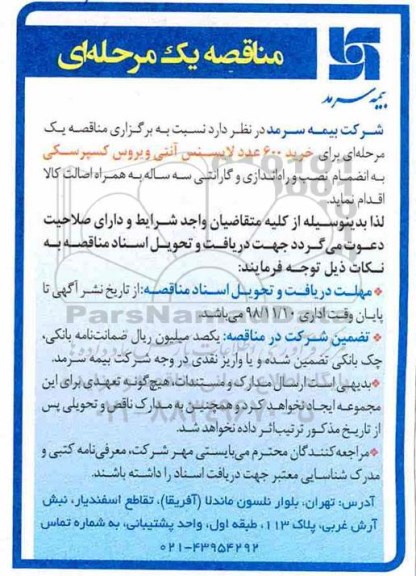 مناقصه یک مرحله‌ای
بیمه سرمد
شرکت بیمه سرمد در نظر دارد نسبت به برگزاری مناقصه یک
مرحله‌ای برای خرید ۶۰۰ عدد لایسنس آنتی ویروس کسپرسکی
به انضمام نصب و راه‌اندازی و گارانتی سه ساله به همراه اصالت کالا
اقدام نماید.
لذا بدینوسیله از کلیه متقاضیان واجد شرایط و دارای صلاحیت
دعوت می‌گردد جهت دریافت و تحویل اسناد مناقصه به
نکات ذیل توجه فرمایند:
مهلت دریافت و تحویل اسناد مناقصه: از تاریخ نشر آگهی تا
پایان وقت اداری ۹۸/۱۱/۱۰ می‌باشد.
تضمین شرکت در مناقصه: یکصد میلیون ریال ضمانت‌نامه بانکی،
چک بانکی تضمین شده و یا واریز نقدی در وجه شرکت بیمه سرمد.
بدیهی است ارسال مدارک و مستندات، هیچ‌گونه تعهدی برای این
مجموعه ایجاد نخواهد کرد و همچنین به مدارک ناقص و تحویلی پس
از تاریخ مذکور ترتیب‌اثر داده نخواهد شد.
مراجعه‌کنندگان محترم می‌بایستی مهر شرکت، معرفی‌نامه کتبی و
مدرک شناسایی معتبر جهت دریافت اسناد را داشته باشند.
آدرس: تهران، بلوار نلسون ماندلا (آفریقا)، تقاطع اسفندیار، نبش
آرش غربی، پلاک ۱۱۳، طبقه اول، واحد پشتیبانی، به شماره تماس
۰۲۱-۴۳۹۵۴۲۹۲